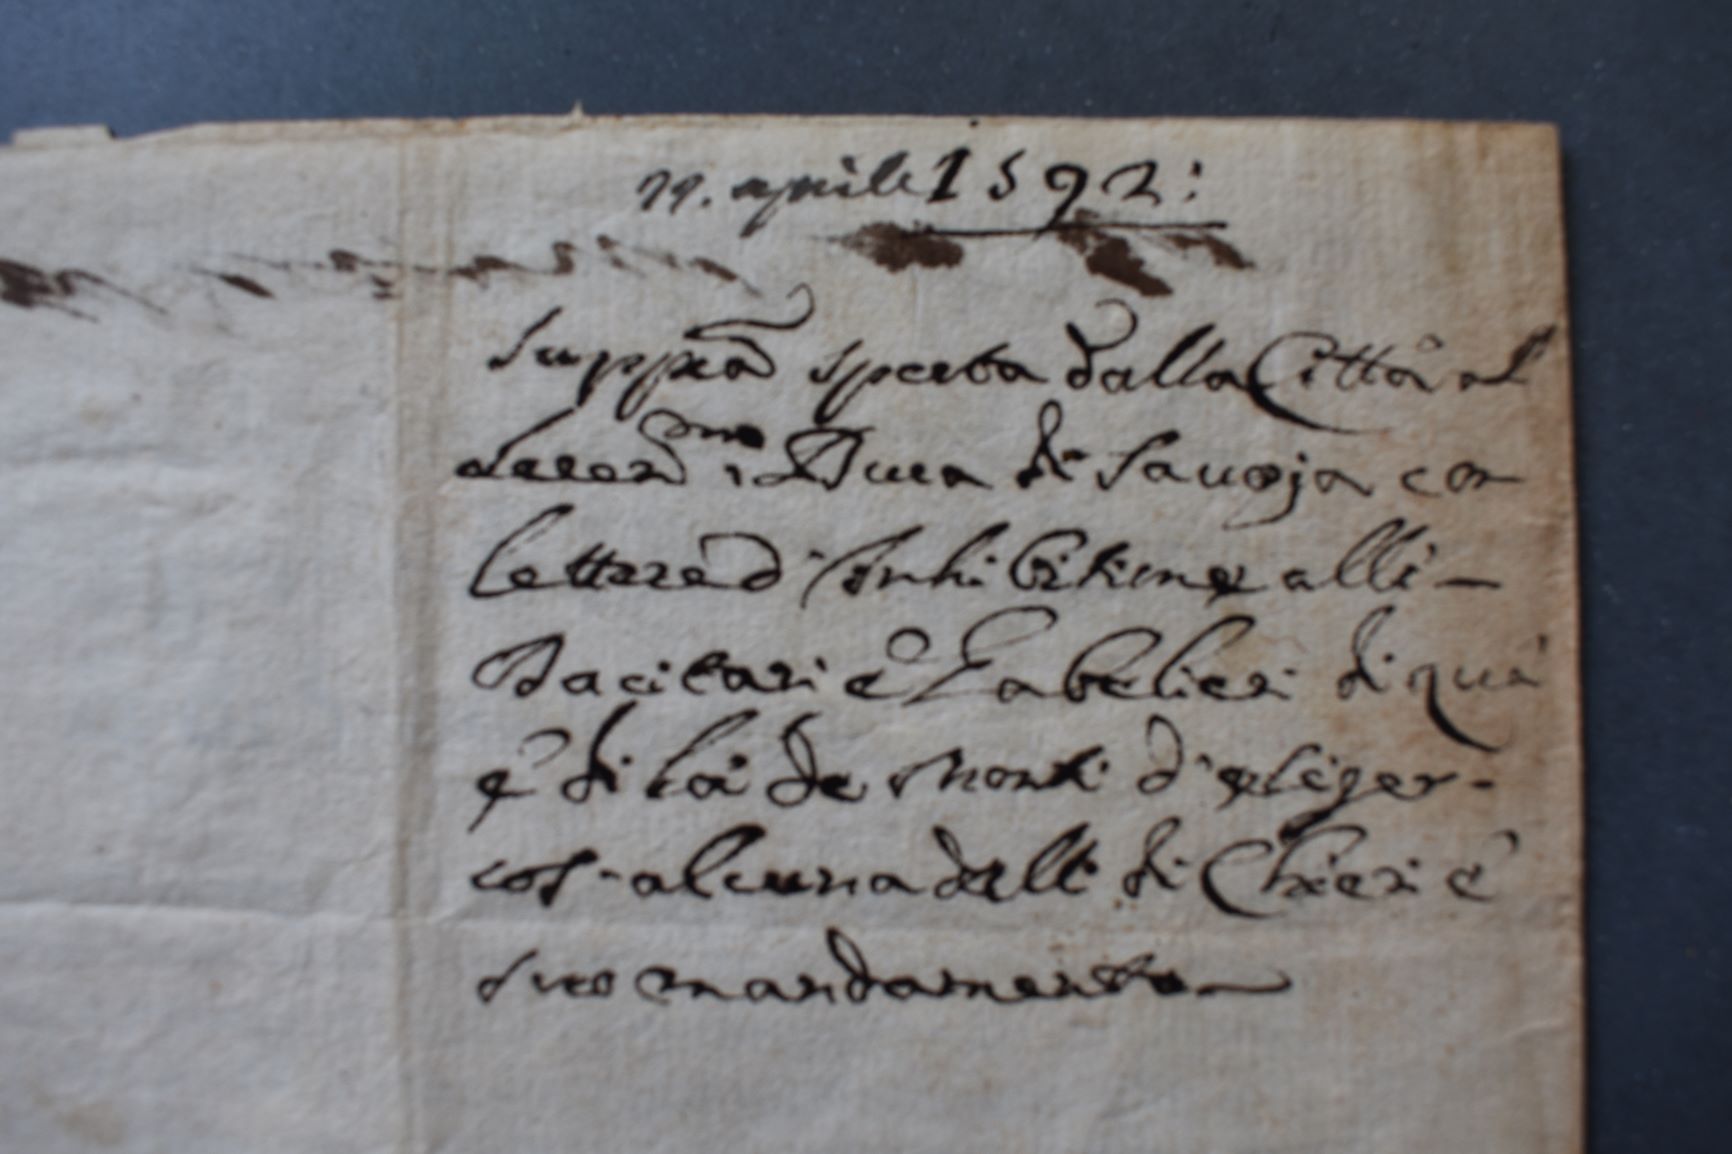 aprile 1592:
Supp.ca sporta dalla Città al
Seren.mo Duca di Sauoja con
lettere d'inhibitione alli -
Dacitari è Gabelieri di quà
è di là de Monti d'esiger -
cos - alcuna dalli di Chieri è
suo mandamento